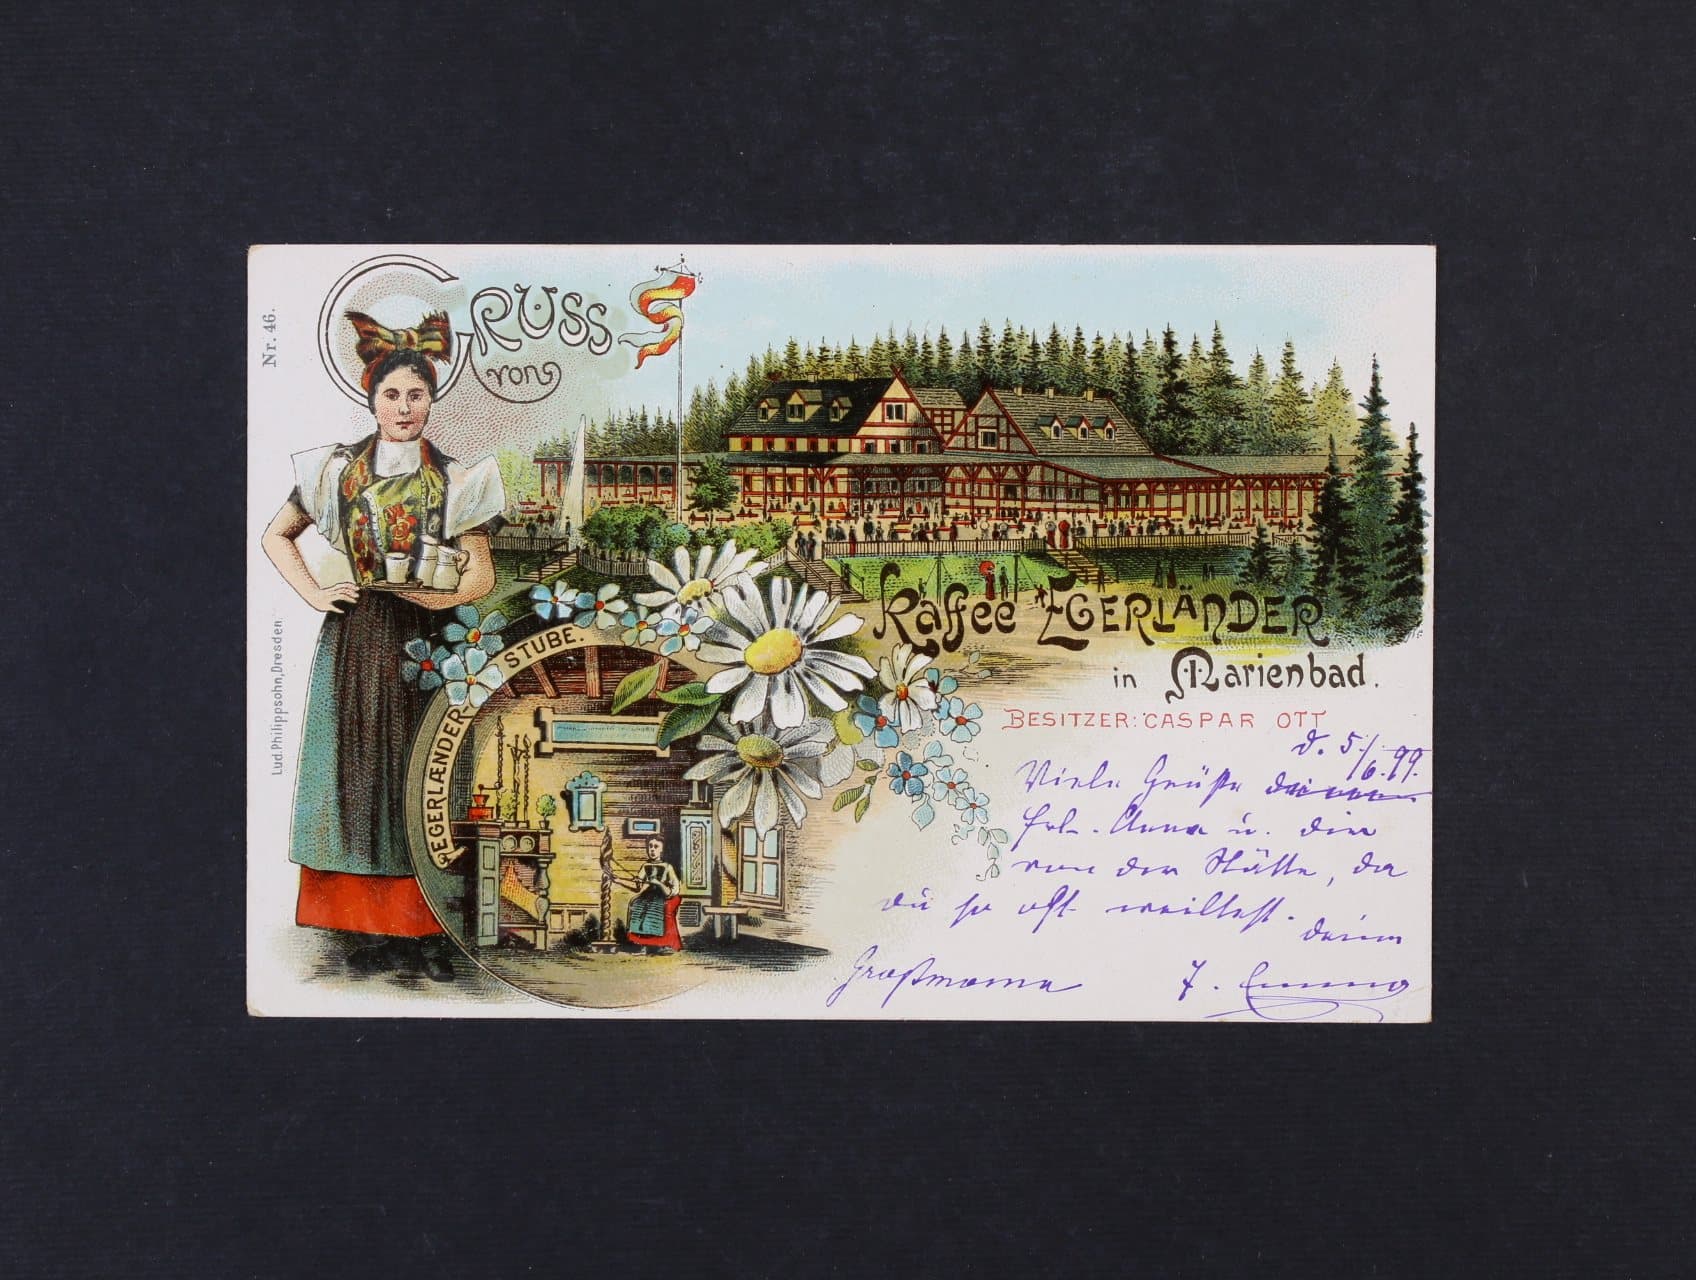 Nr. 46.
GRUSS
von
Kaffee EGERLÄNDER
in Marienbad.
BESITZER: CASPAR OTT
EGERLÆNDER-STUBE.
Lud. Philippsohn, Dresden.
d. 5/6. 99.
Viele Grüße
Frl. Anna u. dir
von der Stätte, da
du so oft weiltest.
deine
Großmama F. Emma